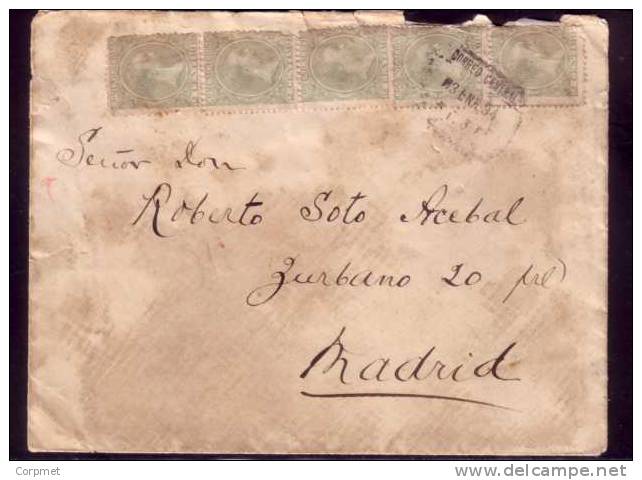 CORREO
3 ENE 94
Señor Don
Roberto Soto Acebal
Zurbano 20 pral
Madrid
Corpmet
www.delcampe.net